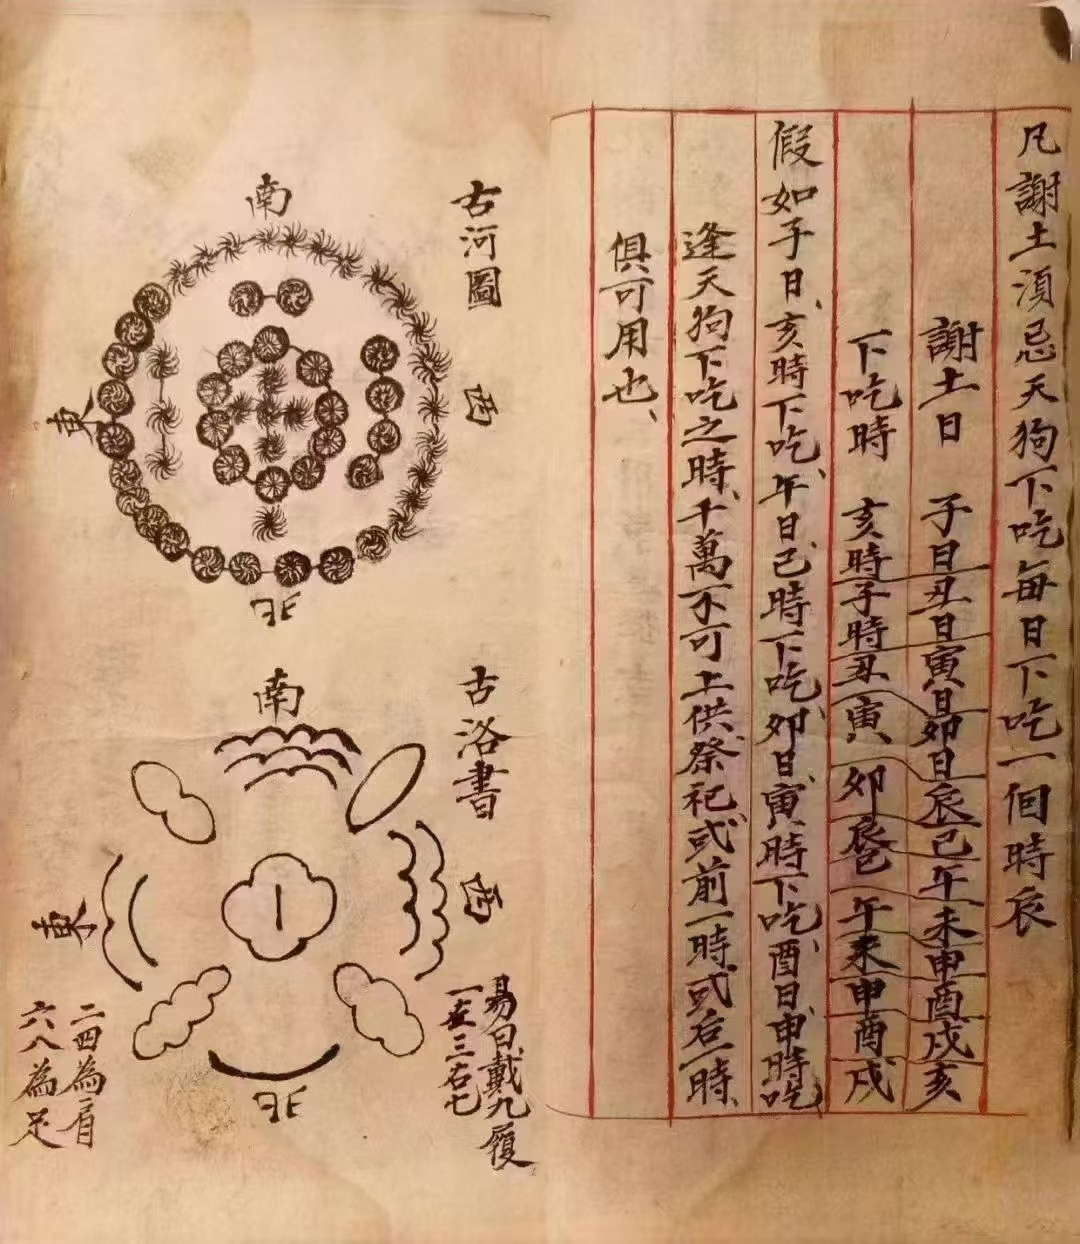 凡謝土須忌天狗下吃每日下吃一個時辰
謝土日 子日丑日寅日卯日辰己午未申酉戌亥
下吃時 亥時子時丑寅卯辰巳午未申酉戌
假如子日、亥時下吃、午日、己時下吃、卯日、寅時下吃、酉日、申時吃
逢天狗下吃之時、千萬不可上供、祭祀或前一時或后一時、
俱可用也、
古河圖
南
西
東
北
古洛書
南
西
東
北
易曰、戴九履
一左三右七
二四為肩
六八為足